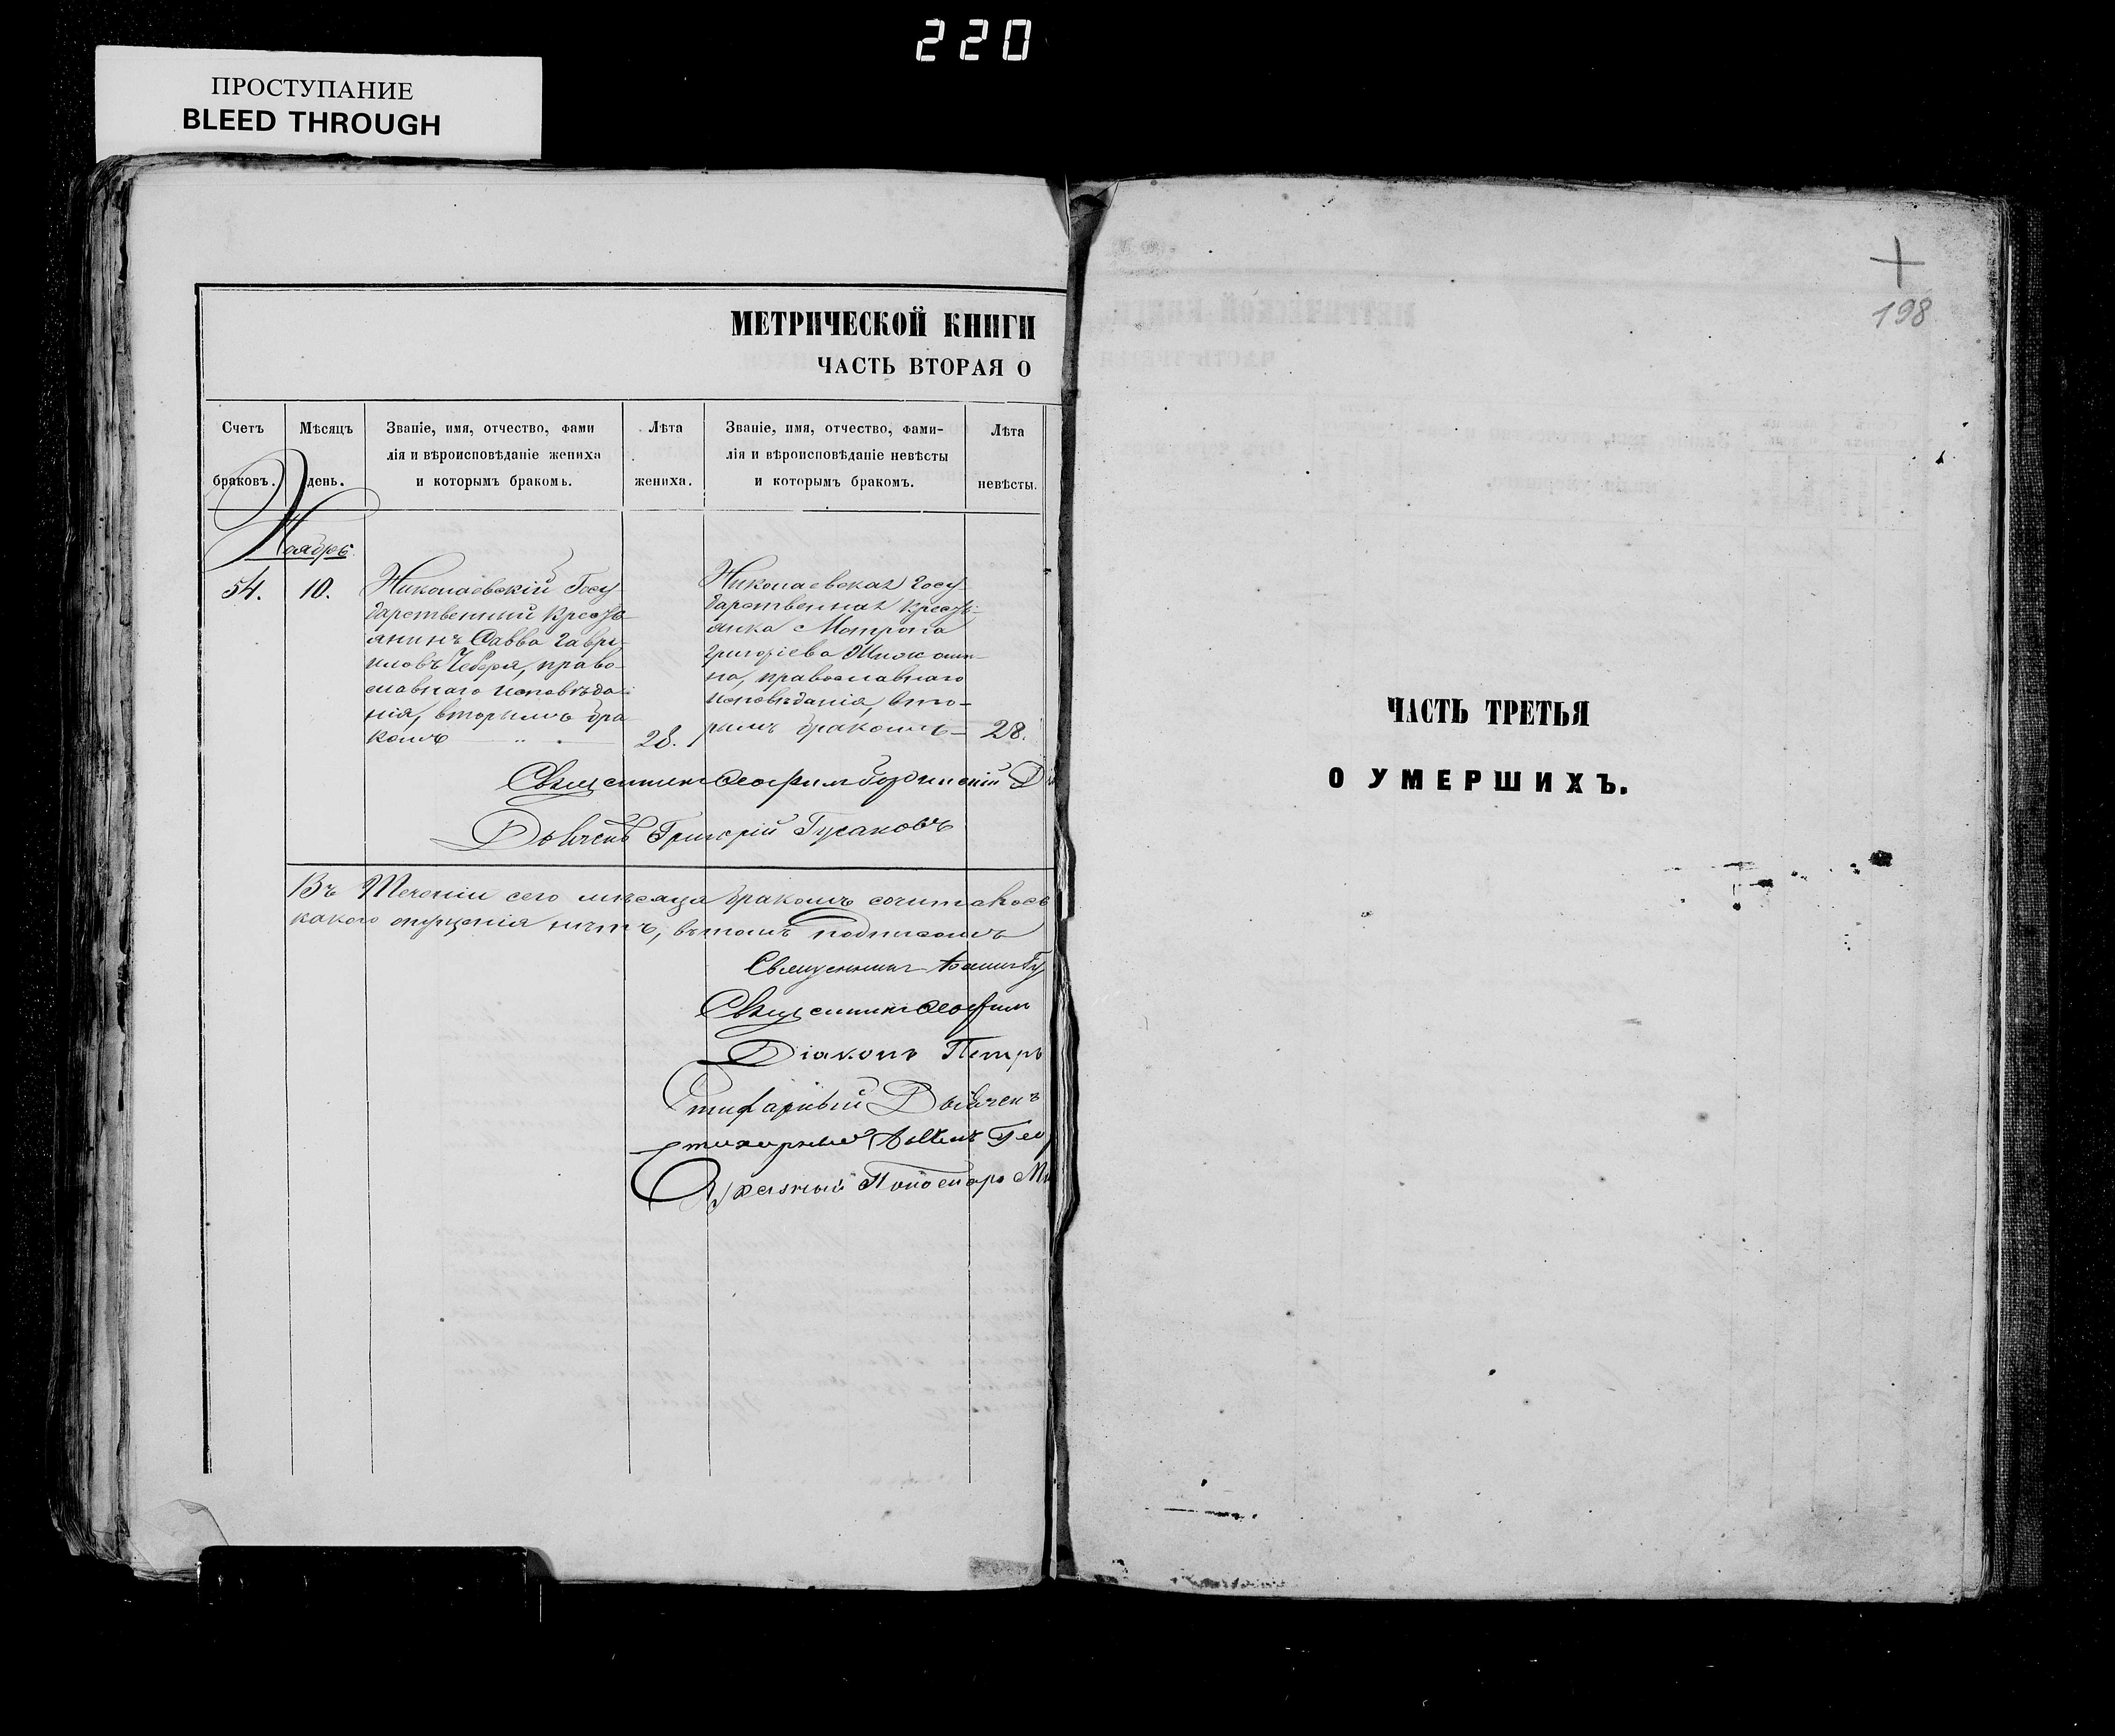 220
ПРОСТУПАНИЕ
BLEED THROUGH
МЕТРИЧЕСКОЙ КНИГИ
ЧАСТЬ ВТОРАЯ О
Счетъ браковъ.
Мѣсяцъ день.
Званіе, имя, отчество, фами
лія и вѣроисповѣданіе жениха
и которымъ бракомъ.
Лѣта жениха.
Званіе, имя, отчество, фами-
лія и вѣроисповѣданіе невѣсты
и которымъ бракомъ.
Лѣта невѣсты.
Ноябрь
54.
10.
Николаевскій Госу
дарственный Кресть
янинъ Савва Гаври
ловъ Чеберя, право
славнаго исповѣда
нія, вторымъ бра
комъ
28.
Николаевская Госу
дарственная Кресть
янка Матрона
Григоріева
на, православнаго
исповѣданія, вто-
рымъ бракомъ
28.
Священникъ Ѳеофилъ
Дьячекъ Григорій Гусаковъ
Въ Теченіи сего мѣсяца бракомъ сочиталось
какого опущенія нѣтъ, въ томъ подписомъ
Священникъ
Священникъ Ѳеофилъ
Діаконъ Петръ
Стихарный Дьячекъ
Стихарный
Указный Пономарь
+
198
ЧАСТЬ ТРЕТЬЯ
О УМЕРШИХЪ.